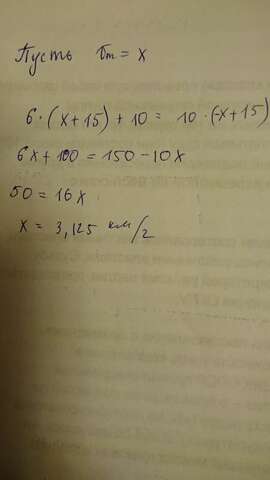 Пусть Vт = x
6·(x+15)+10 = 10·(-x+15)
6x+100 = 150-10x
50 = 16x
x = 3,125 км/г